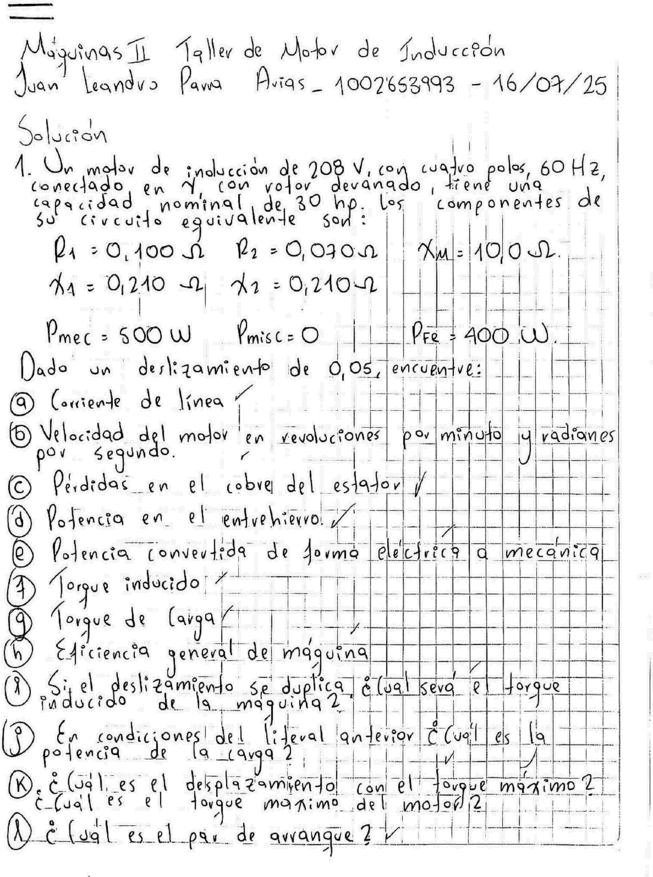 Máquinas II Taller de Motor de Inducción
Juan Leandro Parra Arias - 1002653993 - 16/07/25
Solución
1. Un motor de inducción de 208 V, con cuatro polos, 60 Hz,
conectado en Y, con rotor devanado, tiene una
capacidad nominal de 30 hp. Los componentes de
su circuito equivalente son:
R1 = 0,100 Ω R2 = 0,070 Ω XM = 10,0 Ω.
X1 = 0,210 Ω X2 = 0,210 Ω
Pmec = 500 W Pmisc = 0 PFe = 400 W.
Dado un deslizamiento de 0,05, encuentre:
a Corriente de línea ✓
b Velocidad del motor en revoluciones por minuto y radianes
por segundo. ✓
c Pérdidas en el cobre del estator ✓
d Potencia en el entrehierro. ✓
e Potencia convertida de forma eléctrica a mecánica ✓
f Torque inducido ✓
g Torque de Carga ✓
h Eficiencia general de máquina ✓
i Si el deslizamiento se duplica, ¿Cual será el torque
inducido de la máquina? ✓
j En condiciones del literal anterior ¿Cuál es la
potencia de la carga? ✓
k. ¿Cuál es el desplazamiento con el torque máximo?
¿Cuál es el torque maximo del motor? ✓
l ¿Cuál es el par de arranque? ✓